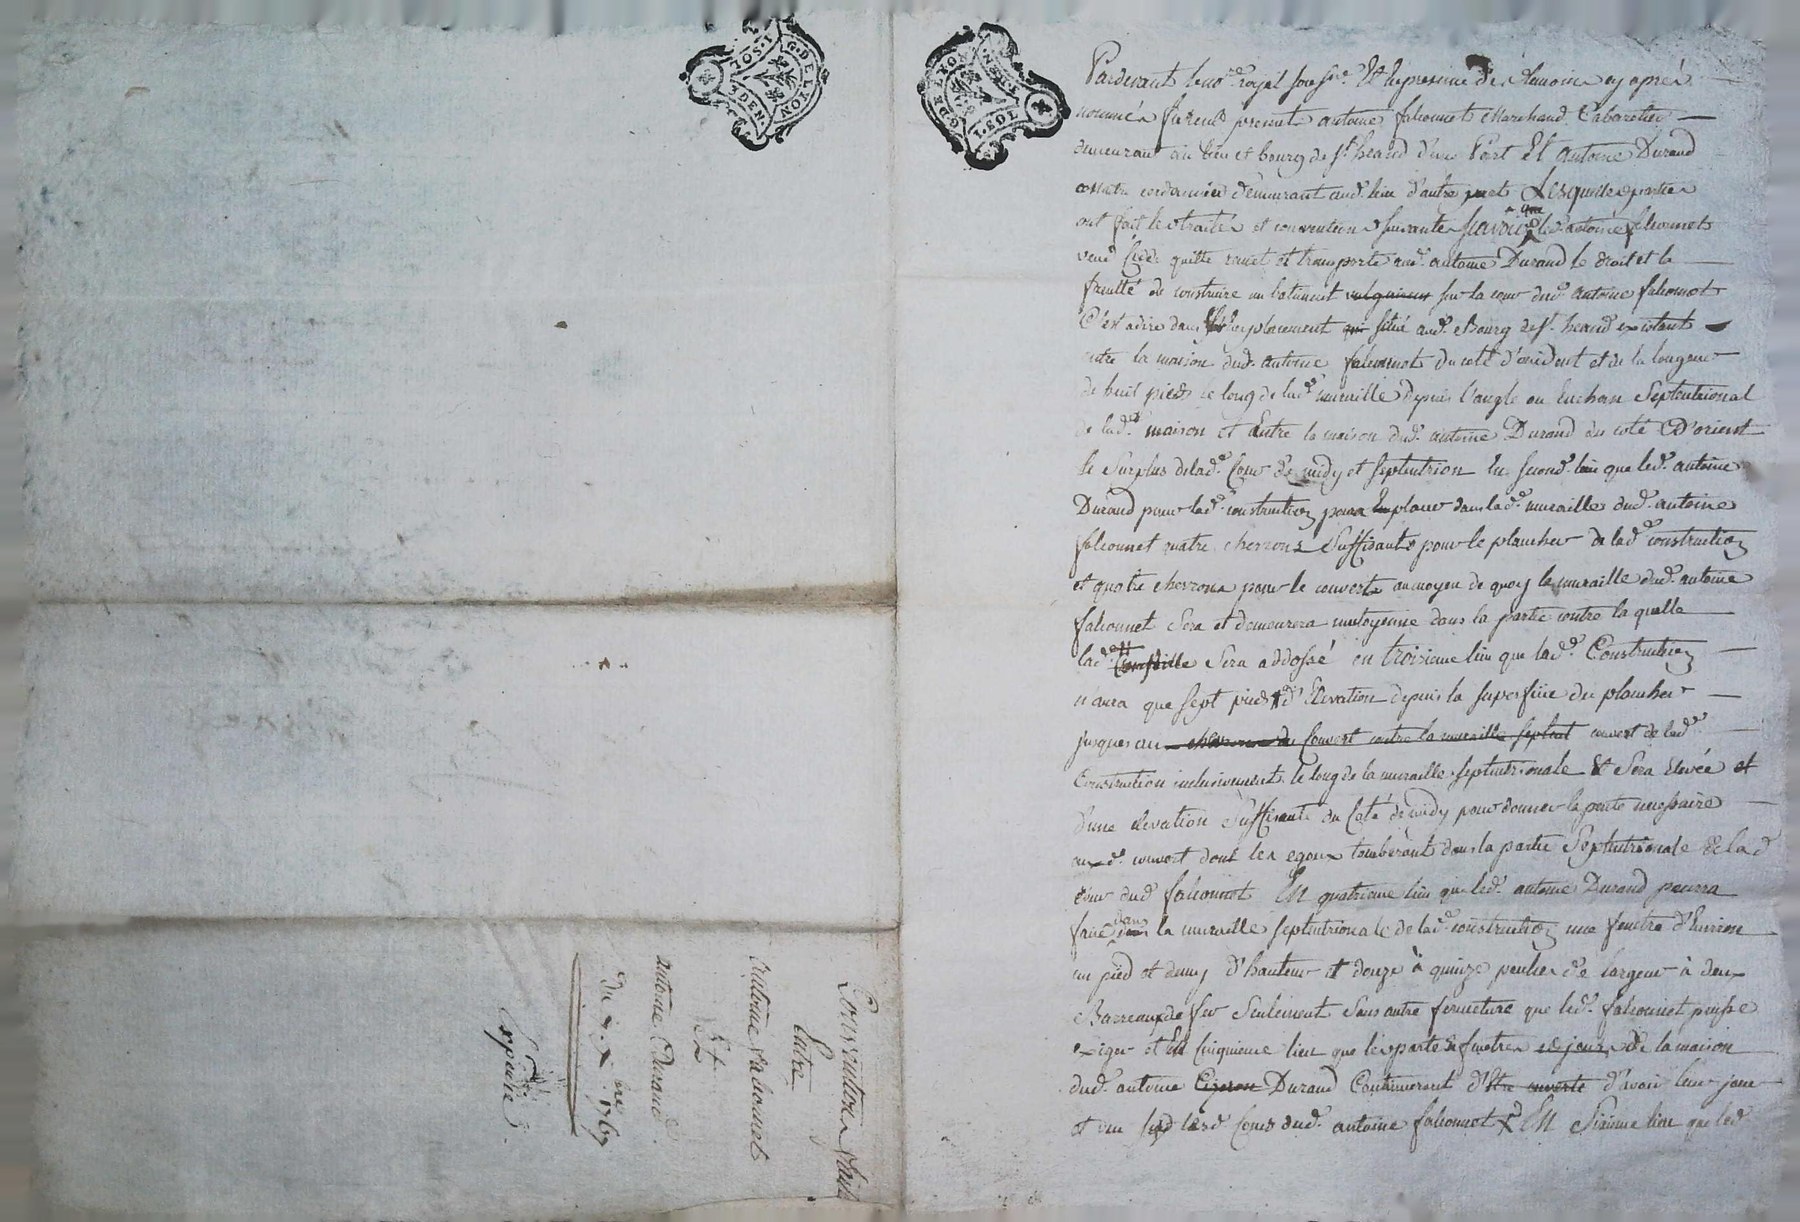 G. DE LYON
2 SOLS
8 DEN.
G. DE LYON
2 SOL
8 DEN.
Pardevant le no.re royal sousig.né Et en presence des temoins cy après
nommés furent presents antoine falconnet Marchand Cabaretier
demeurant au lieu et bourg de S.t heand d'une Part Et antoine Durand
cordonnier demeurant aud. lieu d'autre part Lesquelles parties
ont fait les traités et conventions suivantes scavoir que led. antoine falconnet
vend cede quitte remet et transporte aud. antoine Durand le droit et la
faculté de construire un batiment sur la cour dud. antoine falconnet
C'est a dire dans l'emplacement situé aud. Bourg de S.t heand existant
entre la maison dud. antoine falconnet du coté d'occident et de la longueur
de huit pieds le long de lad.e muraille depuis l'angle ou Enchan Septentrional
de lad.e maison et Entre la maison dud. antoine Durand du coté D'orient
le Surplus de lad.e Cour de midy et septentrion En second lieu que led. antoine
Durand pour lad.e construction pourra placer dans lad.e muraille dud. antoine
falconnet quatre chevrons Suffisants pour le plancher de lad.e construction
et quatre chevrons pour le couvert au moyen de quoy la muraille dud. antoine
falconnet Sera et demeurera mitoyenne dans la partie contre la quelle
lad.e Sera addossé en troisieme lieu que lad.e Construction
n'aura que sept pieds d'Elevation depuis la superficie du plancher
jusques au chevrons du Couvert contre la muraille septent couvert de lad.e
Construction inclusivement le long de la muraille septentrionale Et Sera Elevée et
d'une elevation Suffisante du Coté de midy pour donner la pente necessaire
aud. couvert dont les egoux tomberont dans la partie Septentrionale de lad.e
cour dud. falconnet En quatrieme lieu que led. antoine Durand pourra
faire dans la muraille septentrionale de lad.e construction une fenetre d'Environ
un pied et demy d'hauteur et douze à quinze pouces de largeur à deux
Barreaux de fer Seulement Sans autre fermeture que led. falconnet puisse
exiger et En Cinquieme lieu que les portes fenetres et jours de la maison
dud. antoine Durand Continueront d'être ouverts d'avoir leur jour
et vue sur lad.e Cour dud. antoine falconnet En Sixieme lieu que led.
Conventions faites
Entre
antoine falconnet
Et
antoine Durand
du 1767
Expediée